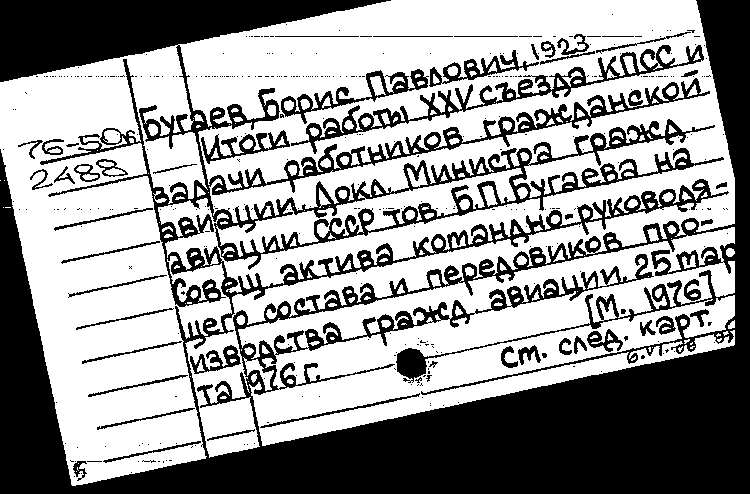 Бугаев, Борис Павлович, 1923
76-50
2488
Итоги работы XXV съезда КПСС и
задачи работников гражданской
авиации. Докл. Министра гражд.
авиации СССР тов. Б.П. Бугаева на
Совещ. актива командно-руководя-
щего состава и передовиков про-
изводства гражд. авиации, 25 мар
та 1976 г.
[М., 1976]
См. след. карт.